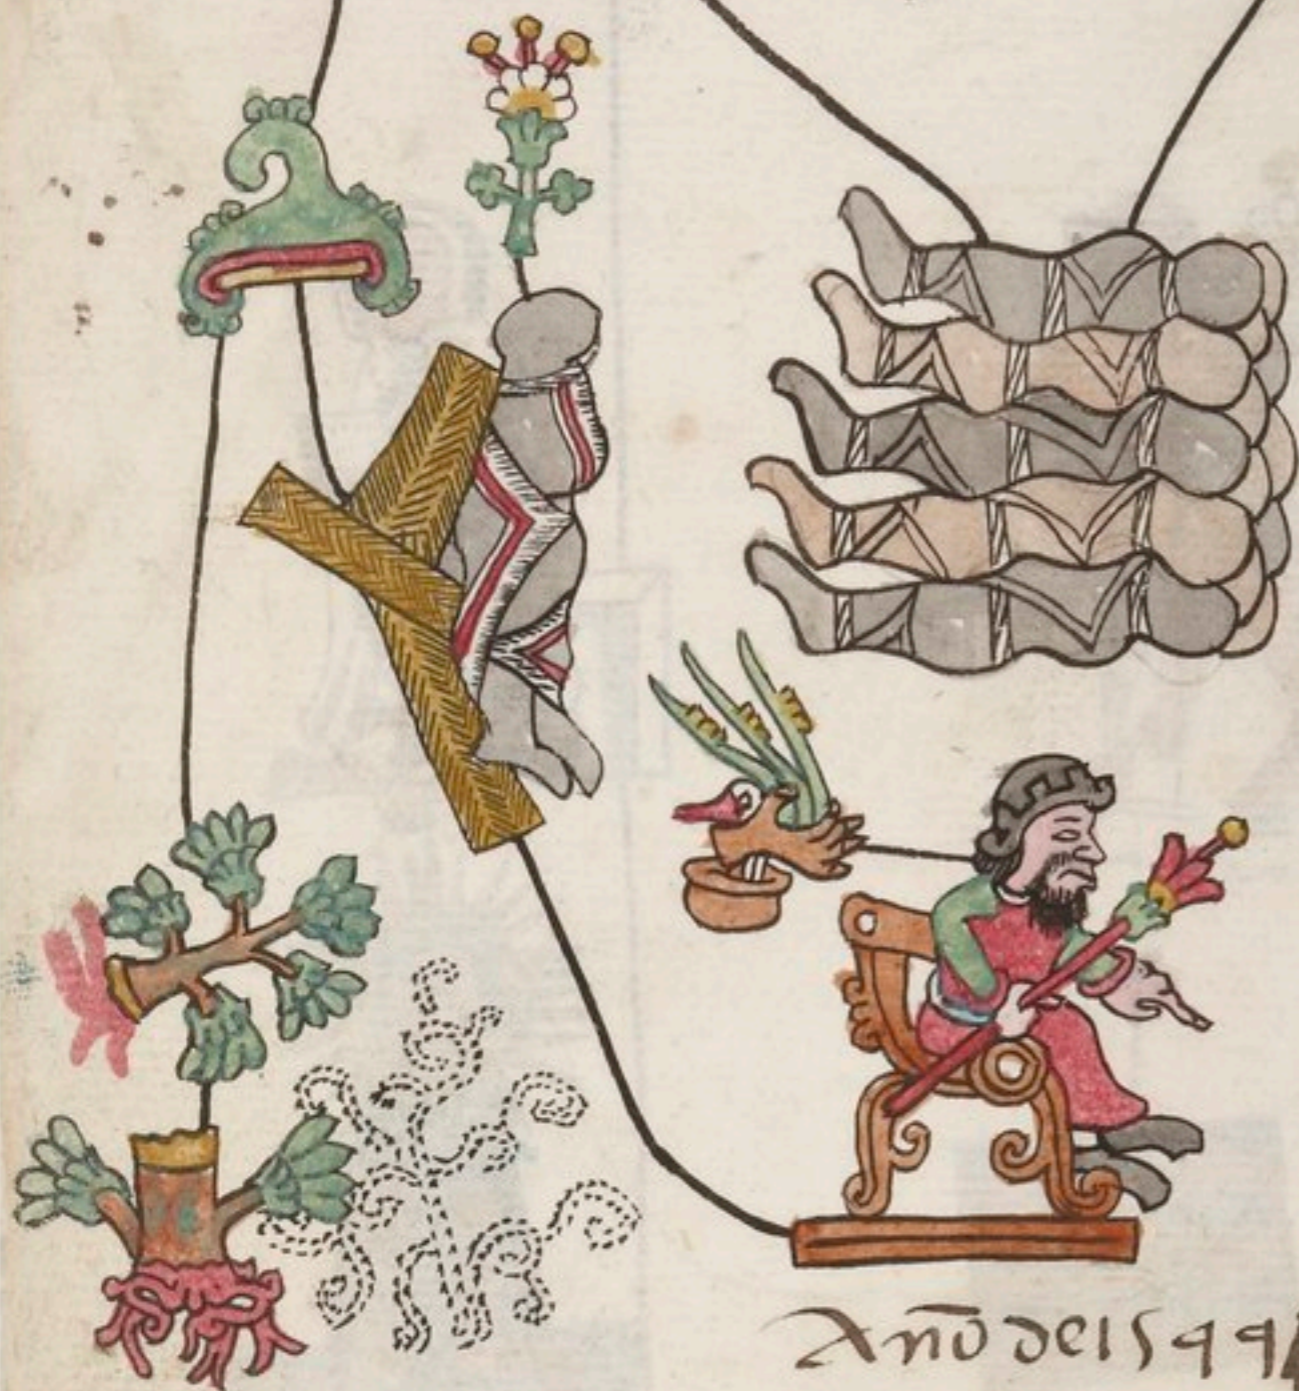 Año de 1544